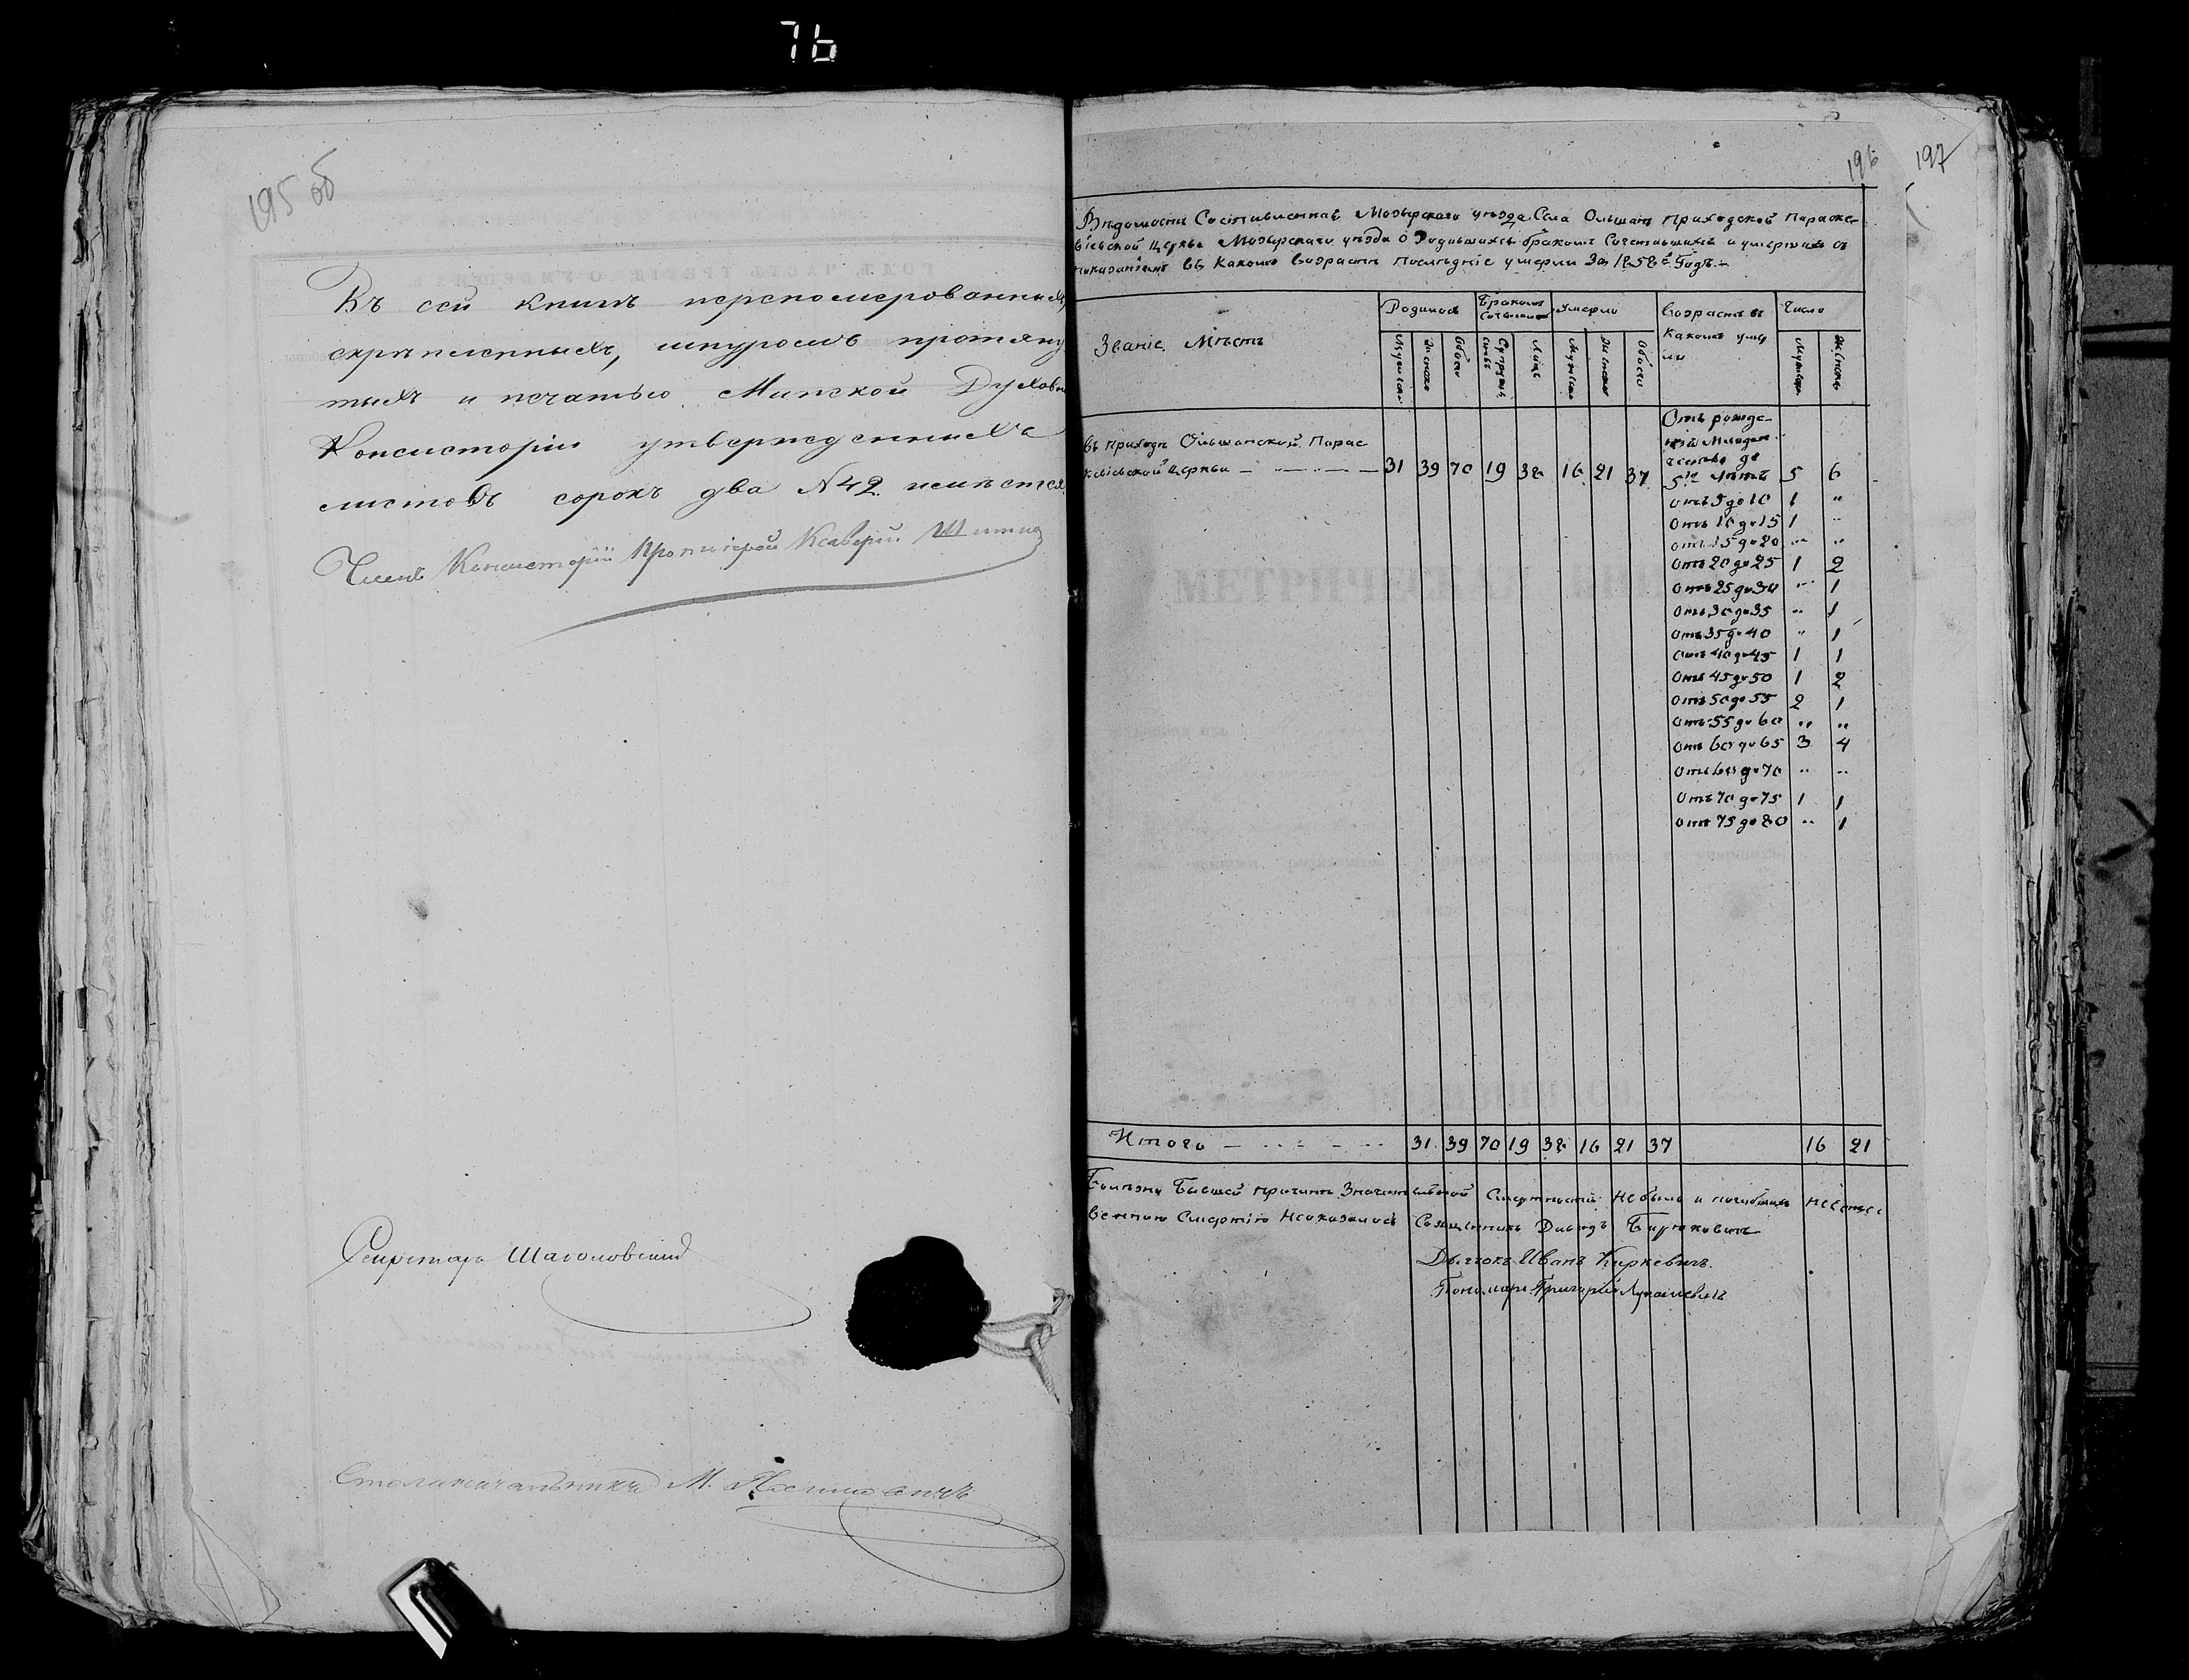 76
195 об
Въ сей книгѣ переномерованныхъ,
скрѣпленныхъ, шнуромъ протяну
тыхъ и печатью Минской Духовной
Консисторіи утвержденныхъ
листовъ сорокъ два №42. имѣется
Членъ Консисторіи Протоіерей Ксаверій
Секретарь
Столоначальникъ М.
196 197
Вѣдомость Составленная Мозырскаго уѣзда Села Ольшанъ приходской Параске
віевской церкви Мозырскаго уѣзда о Родившихся бракомъ Сочетавшихся и умершихъ съ
показаніемъ въ Какомъ возрастѣ послѣдніе умерли За 1858й Годъ.
Званіе Мѣстъ
Родилось
Бракомъ Сочетано
Умерло
Возрастъ въ Какомъ умер ли
Число
Мужеска Женска Обоего Супруж ствъ Лицъ Мужеска Женска Обоего Мужеска Женска
Въ приходѣ Ольшанской Парас
кевіевской церкви 31 39 70 19 38 16 21 37
Отъ рожде
нія Младен
чества до
5ти Лѣтъ 5 6
Отъ 5 до 10 1 "
Отъ 10 до 15 1 "
Отъ 15 до 20 " "
Отъ 20 до 25 1 2
Отъ 25 до 30 " 1
Отъ 30 до 35 " 1
Отъ 35 до 40 " 1
Отъ 40 до 45 1 1
Отъ 45 до 50 1 2
Отъ 50 до 55 2 1
Отъ 55 до 60 " "
Отъ 60 до 65 3 4
Отъ 65 до 70 " "
Отъ 70 до 75 1 1
Отъ 75 до 80 " 1
Итого 31 39 70 19 38 16 21 37 16 21
Болѣзни бывшей причиною Значительной Смертности не было и погибшихъ
Смертію Неоказалось Священникъ Давидъ
Дьячокъ Иванъ Киркевичъ
Пономарь Григорій Лукашевичъ